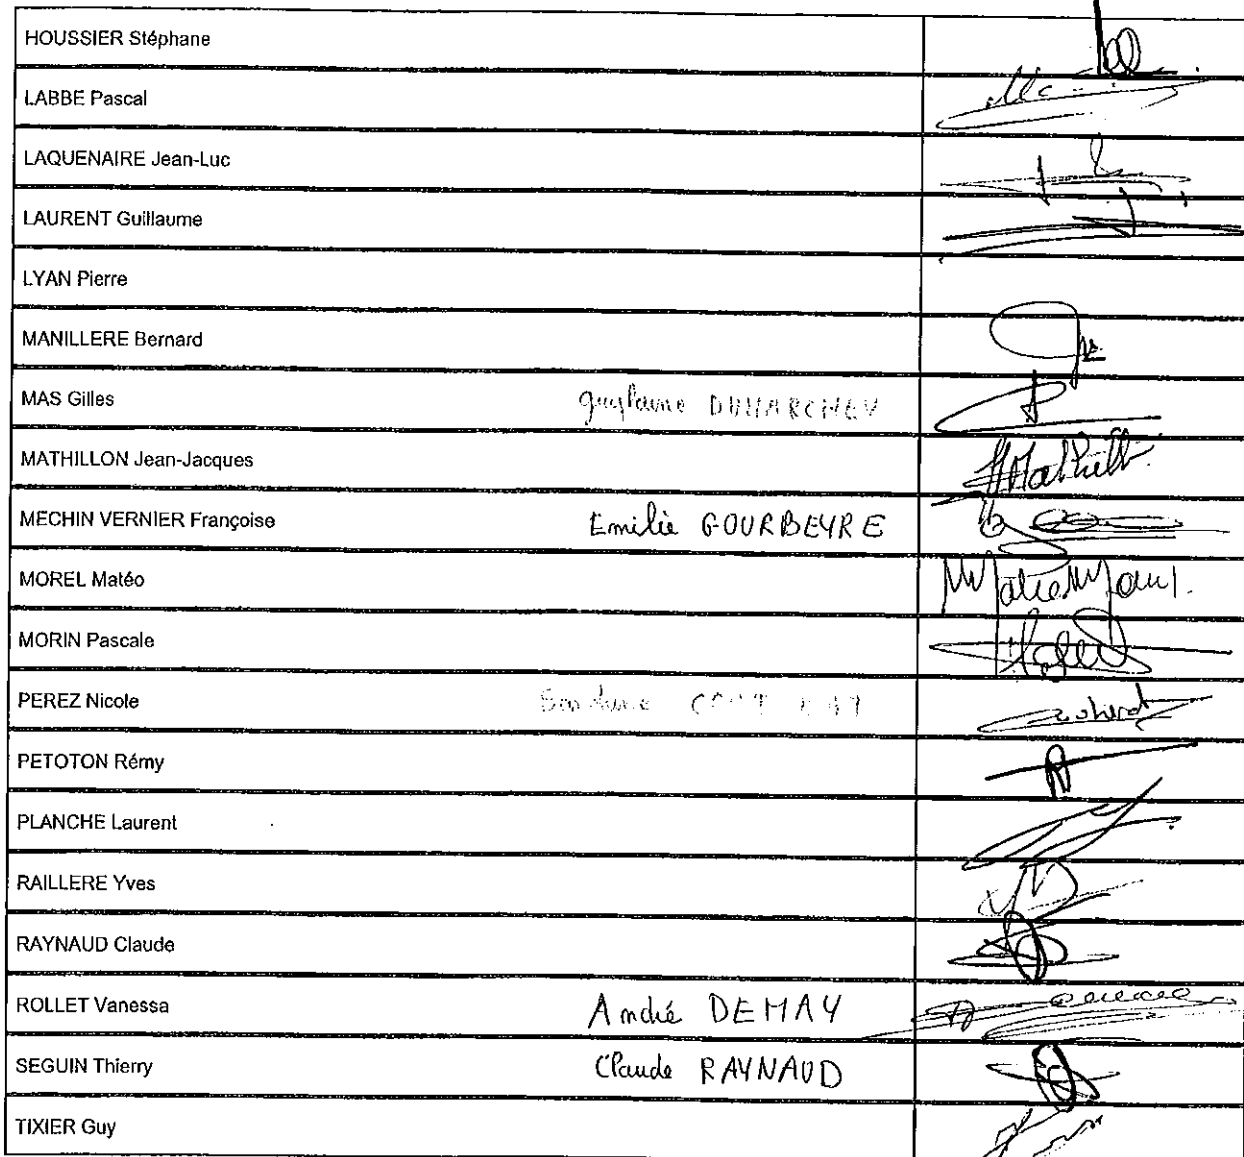 HOUSSIER Stéphane
LABBE Pascal
LAQUENAIRE Jean-Luc
LAURENT Guillaume
LYAN Pierre
MANILLERE Bernard
MAS Gilles
MATHILLON Jean-Jacques
MECHIN VERNIER Françoise Emilie GOURBEYRE
MOREL Matéo
MORIN Pascale
PEREZ Nicole
PETOTON Rémy
PLANCHE Laurent
RAILLERE Yves
RAYNAUD Claude
ROLLET Vanessa André DEMAY
SEGUIN Thierry Claude RAYNAUD
TIXIER Guy